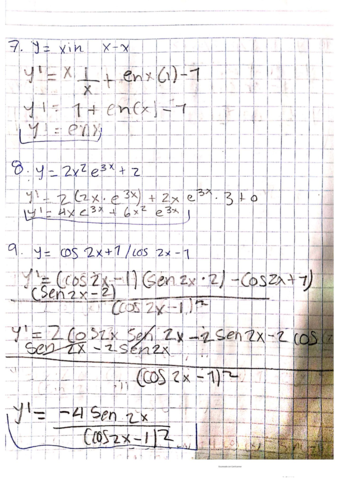 7. y= xin x-x
y'= x 1/x + enx(1)-1
y'= 1+ en(x) -1
y'= enx
8. y= 2x² e³ˣ + 2
y'= 2(2x·e³ˣ) + 2x e³ˣ·3+0
y'= 4x e³ˣ + 6x² e³ˣ
9. y= cos 2x+1/cos 2x-1
y'= (cos2x-1)(sen2x·2) -cos2x+1)
(sen2x-2)
(cos2x-1)²
y'= 2 cos2x sen 2x -2 sen2x-2 cos
sen 2x -2 sen2x
(cos 2x -1)²
y'= -4 sen 2x
(cos2x-1)²